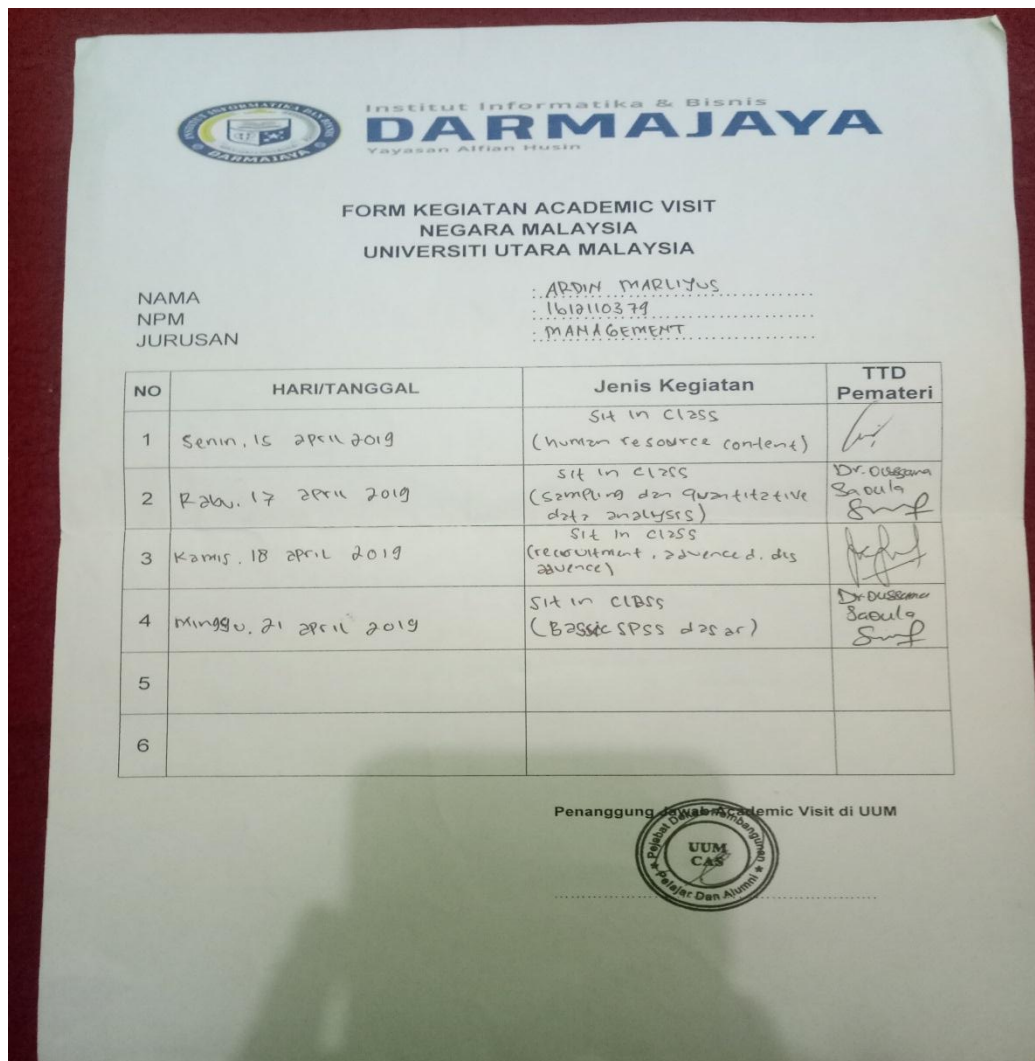 INSTITUT INFORMATIKA DAN BISNIS
DARMAJAYA
Institut Informatika & Bisnis
DARMAJAYA
Yayasan Alfian Husin
FORM KEGIATAN ACADEMIC VISIT
NEGARA MALAYSIA
UNIVERSITI UTARA MALAYSIA
NAMA : ARDIN MARLIYUS
NPM : 1612110379
JURUSAN : MANAGEMENT
NO HARI/TANGGAL Jenis Kegiatan TTD Pemateri
1 Senin, 15 april 2019 Sit in Class
(human resource content)
2 Rabu, 17 april 2019 sit in class Dr. Oussama
(sampling dan quantitative Saoula
data analysis)
3 Kamis, 18 april 2019 Sit in class
(recrouitment, advenced, des
advence)
4 Minggu, 21 april 2019 Sit in class Dr Oussama
(Bassic SPSS dasar) Saoula
5
6
Penanggung Jawab Academic Visit di UUM
Pejabat Dekan Pembangunan
UUM
CAS
Pelajar Dan Alumni